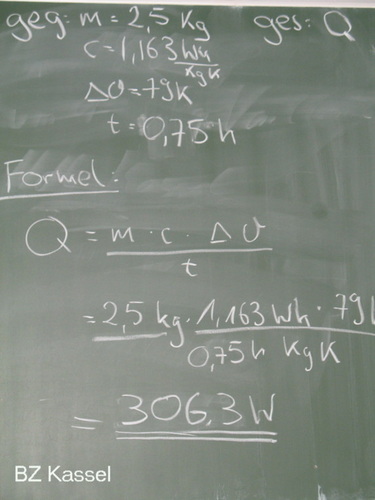 geg: m = 2,5 Kg ges: Q
c = 1,163 Wh
KgK
Δϑ = 79K
t = 0,75 h
Formel:
Q = m · c · Δϑ
t
= 2,5 kg · 1,163 Wh · 79K
0,75h KgK
= 306,3 W
BZ Kassel